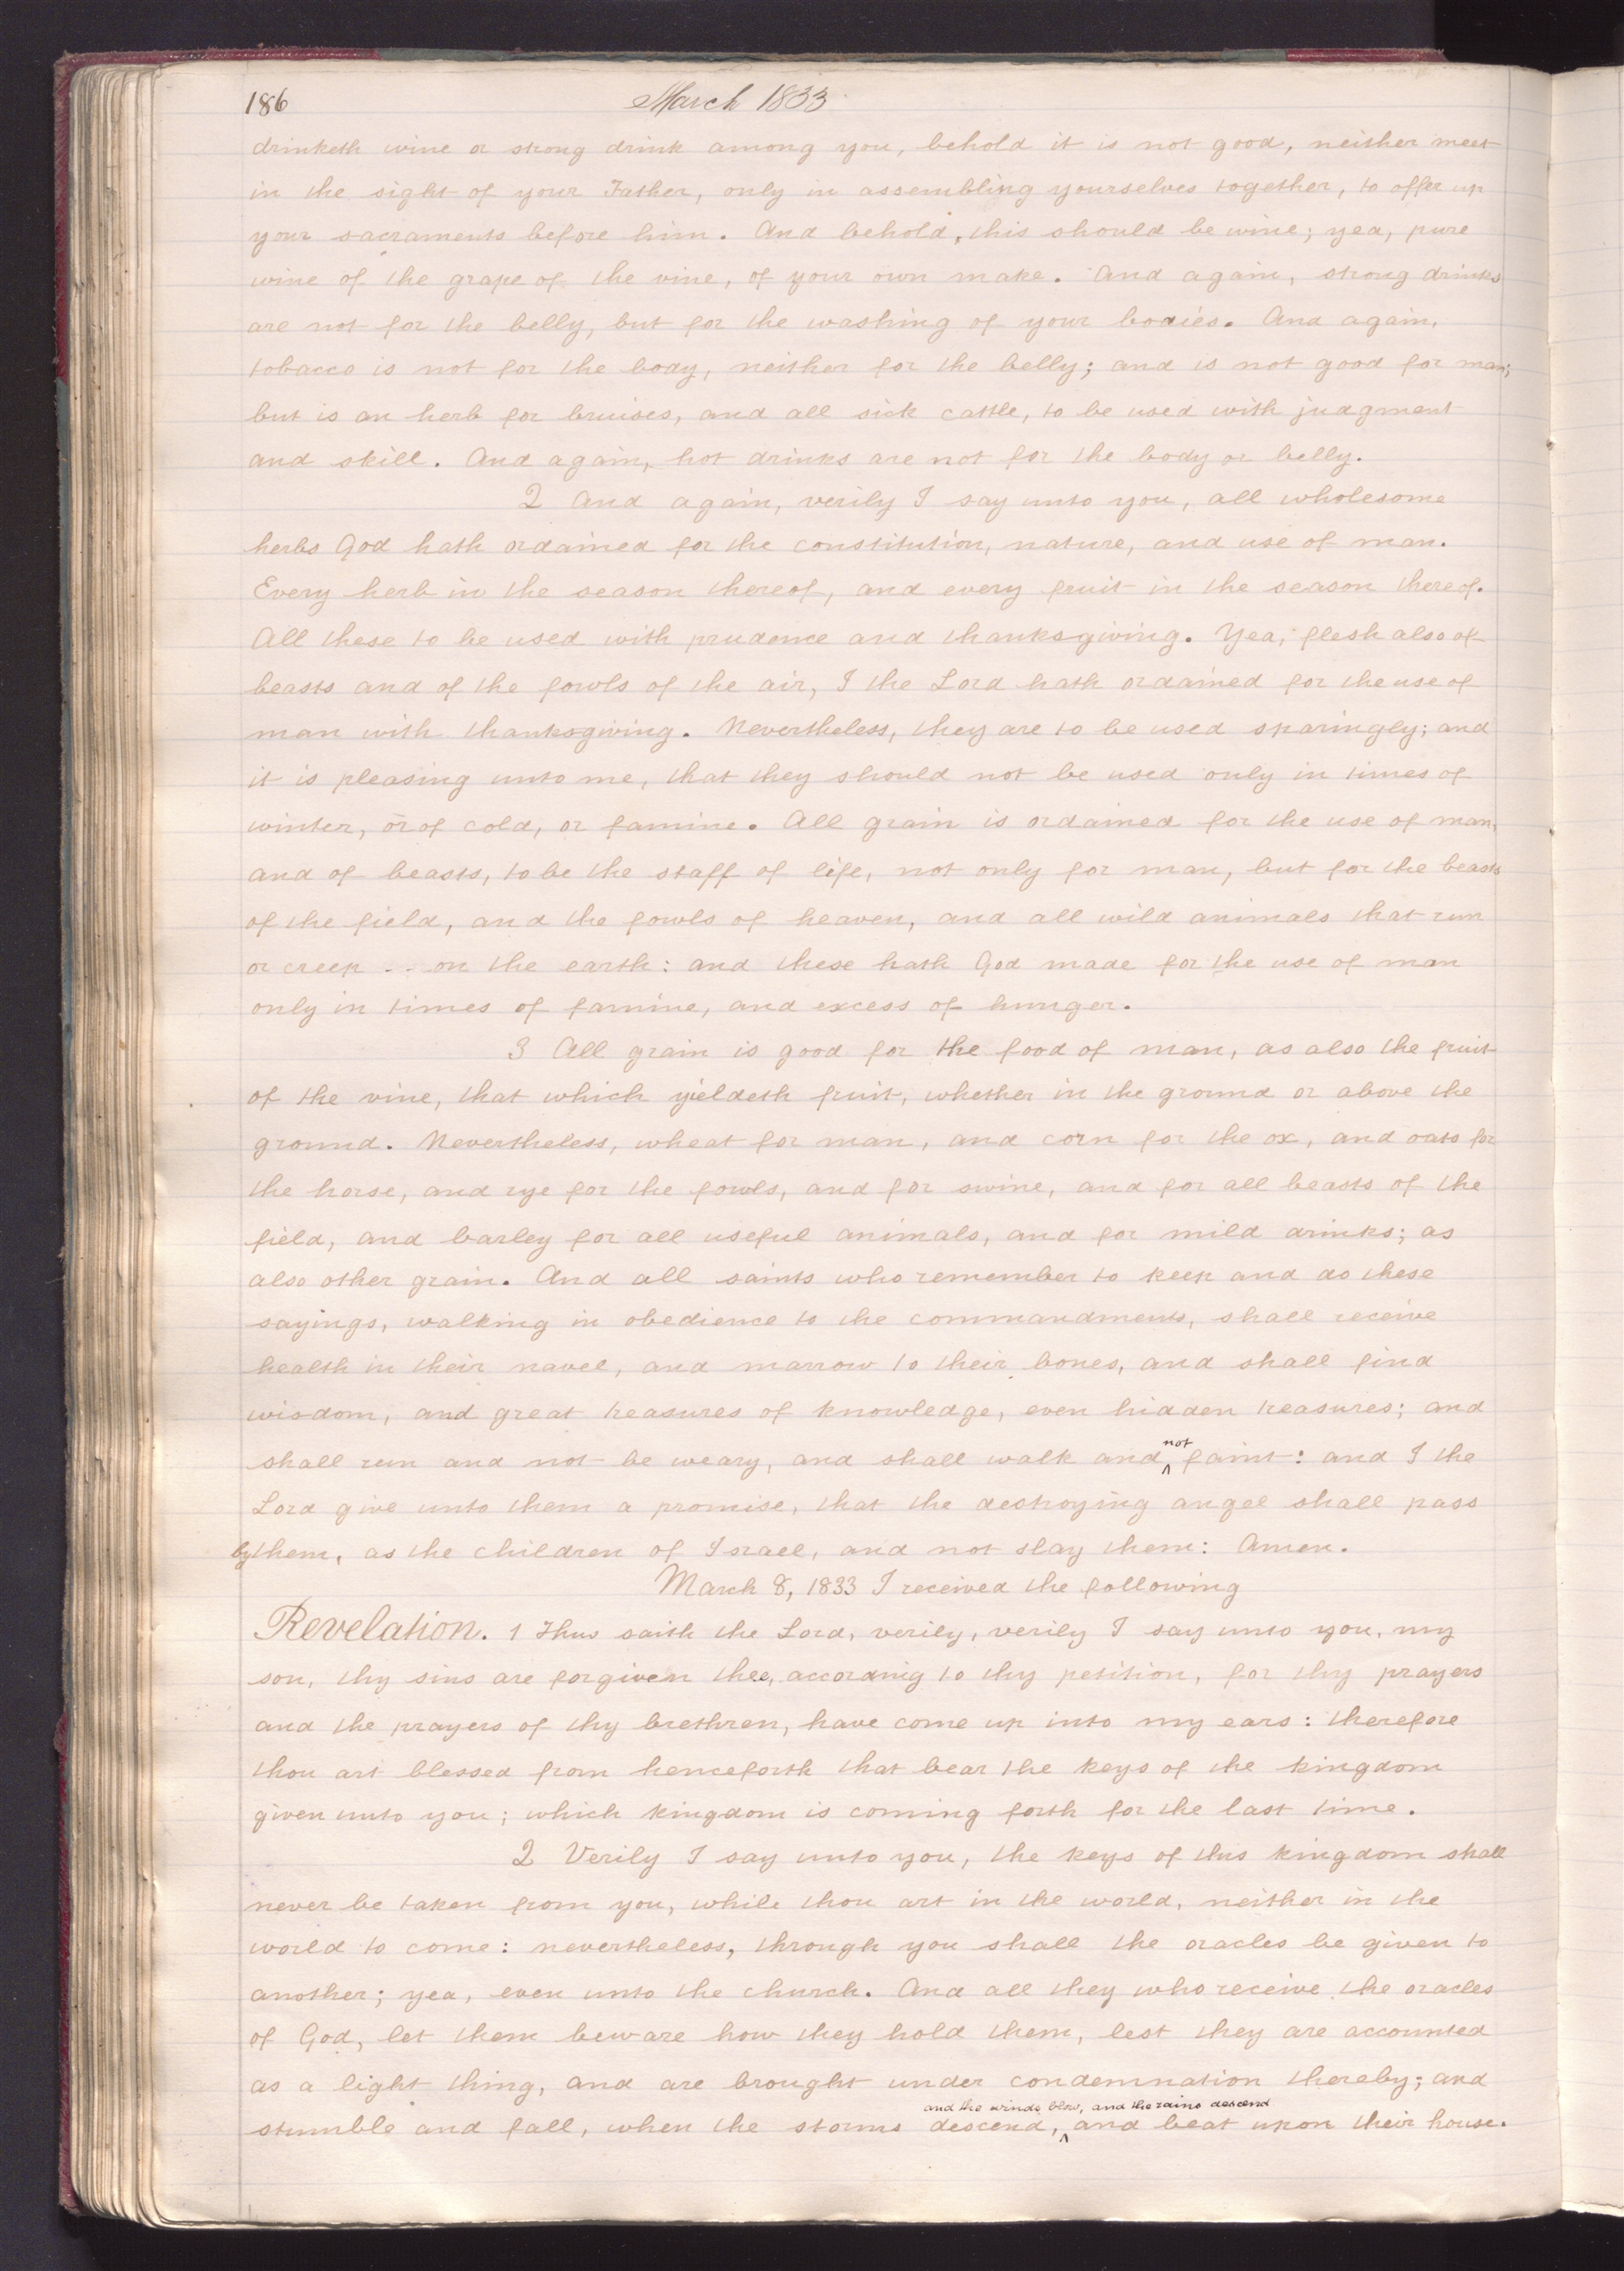 186
March 1833
drinketh wine or strong drink among you, behold it is not good, neither meet
in the sight of your Father, only in assembling yourselves together, to offer up
your sacraments before him. And behold, this should be wine; yea, pure
wine of the grape of the vine, of your own make. And again, strong drinks
are not for the belly, but for the washing of your bodies. And again,
tobacco is not for the body, neither for the belly; and is not good for man;
but is an herb for bruises, and all sick cattle, to be used with judgment
and skill. And again, hot drinks are not for the body or belly.
2 And again, verily I say unto you, all wholesome
herbs God hath ordained for the constitution, nature, and use of man.
Every herb in the season thereof, and every fruit in the season thereof.
All these to be used with prudence and thanksgiving. Yea, flesh also of
beasts and of the fowls of the air, I the Lord hath ordained for the use of
man with thanksgiving. Nevertheless, they are to be used sparingly; and
it is pleasing unto me, that they should not be used only in times of
winter, or of cold, or famine. All grain is ordained for the use of man,
and of beasts, to be the staff of life, not only for man, but for the beasts
of the field, and the fowls of heaven, and all wild animals that run
or creep .. on the earth: and these hath God made for the use of man
only in times of famine, and excess of hunger.
3 All grain is good for the food of man, as also the fruit
of the vine, that which yieldeth fruit, whether in the ground or above the
ground. Nevertheless, wheat for man, and corn for the ox, and oats for
the horse, and rye for the fowls, and for swine, and for all beasts of the
field, and barley for all useful animals, and for mild drinks; as
also other grain. And all saints who remember to keep and do these
sayings, walking in obedience to the commandments, shall receive
health in their navel, and marrow to their bones, and shall find
wisdom, and great treasures of knowledge, even hidden treasures; and
shall run and not be weary, and shall walk and not faint: and I the
Lord give unto them a promise, that the destroying angel shall pass
by them, as the children of Israel, and not slay them: Amen.
March 8, 1833 I received the following
Revelation. 1 Thus saith the Lord, verily, verily I say unto you, my
son, thy sins are forgiven thee, according to thy petition, for thy prayers
and the prayers of thy brethren, have come up into my ears: therefore
thou art blessed from henceforth that bear the keys of the kingdom
given unto you; which kingdom is coming forth for the last time.
2 Verily I say unto you, the keys of this kingdom shall
never be taken from you, while thou art in the world, neither in the
world to come: nevertheless, through you shall the oracles be given to
another; yea, even unto the church. And all they who receive the oracles
of God, let them beware how they hold them, lest they are accounted
as a light thing, and are brought under condemnation thereby; and
stumble and fall, when the storms descend, and the winds blow, and the rains descend and beat upon their house.